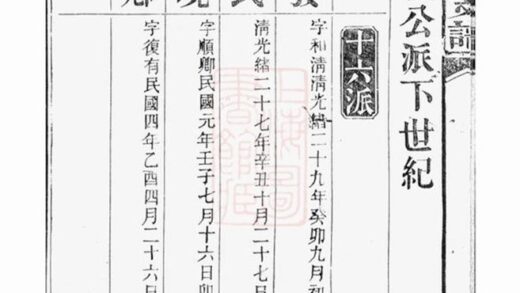 公派下世紀
十六派
字和清清光緒二十九年癸卯九月初
清光緒二十七年辛丑十月二十七
字順卿民國元年壬子七月十六日卯
字復有民國四年乙酉四月二十六日